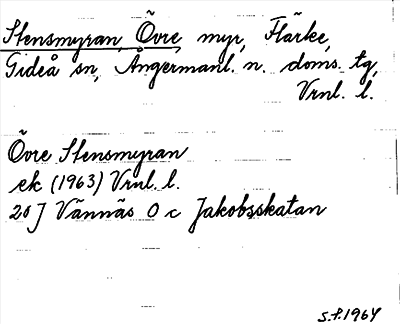 Stensmyran, Övre, myr, Flärke,
Gideå sn, Ångermanl. n. doms. tg,
Vrnl. l.
Övre Stensmyran
ek (1963) Vrnl. l.
20 J Vännäs 0 c Jakobsskatan
S.P. 1964